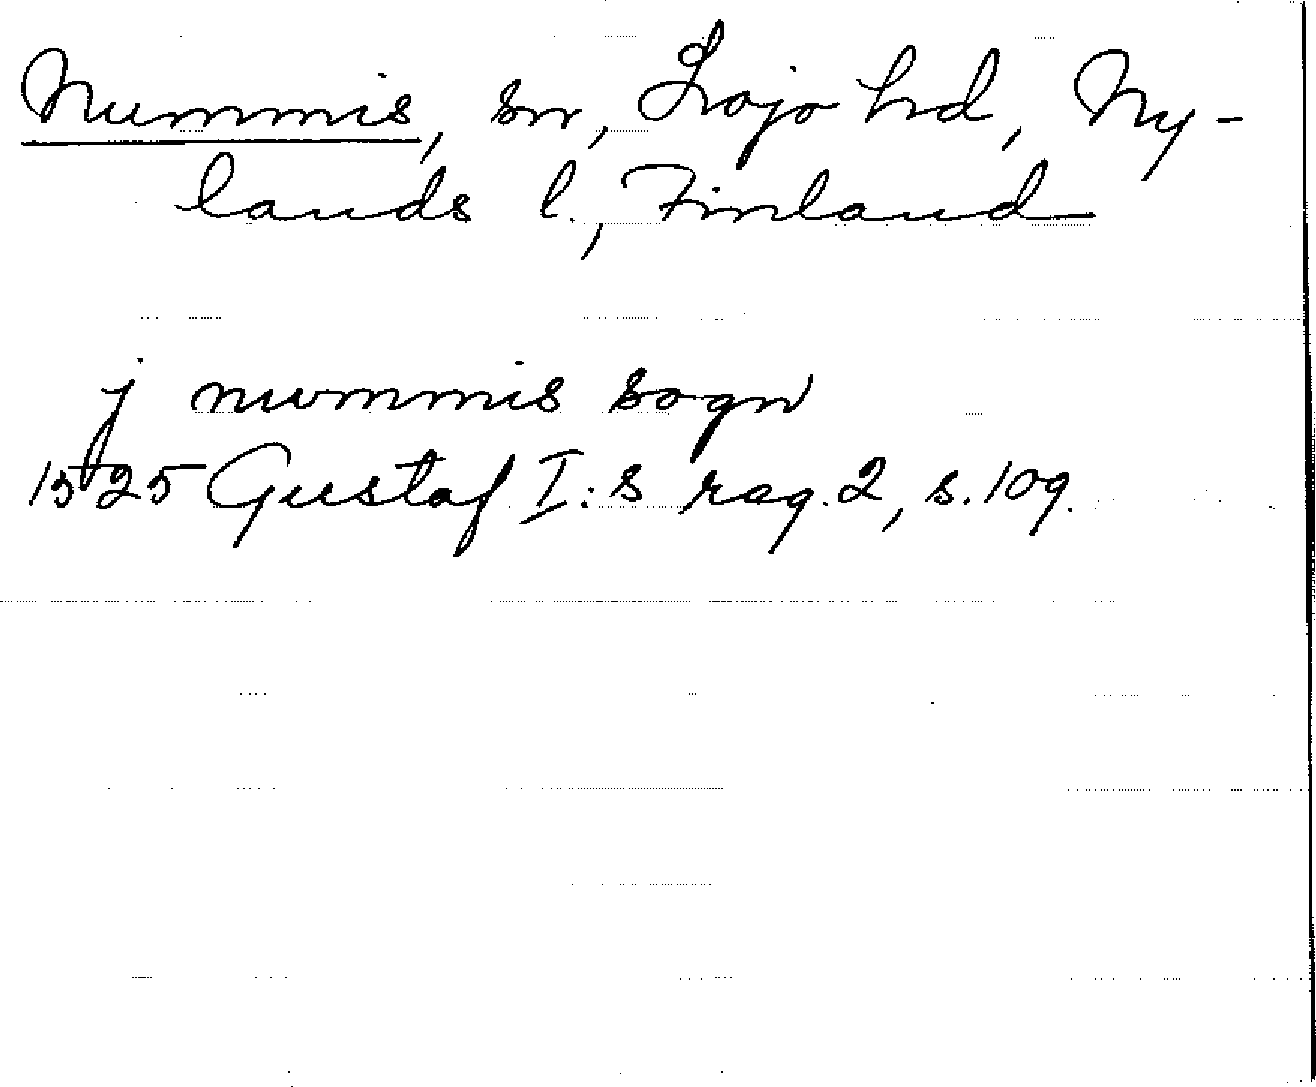 Nummis, sn, Lojo hd, Ny-
lands l., Finland
j nummis sogn
1525 Gustaf I:s reg. 2, s. 109.